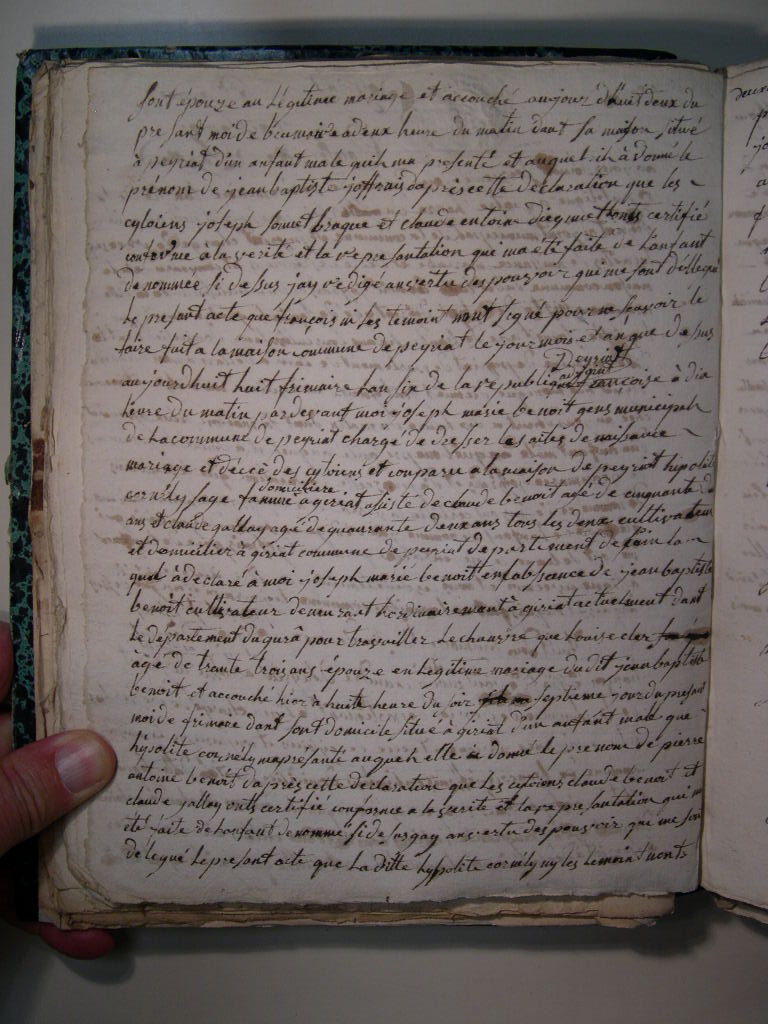 sont épouze au Légitime mariage et accouché aujour d'huit deux du
present moi de brumaire a deux heure du matin dant sa maison situé
à peyriat d'un anfant male quih ma presenté et auquel ih à donné le
prénom de jean baptiste joffrai d'après cette declaration que les
cytoiens joseph braque et claude entoine onts certifié
conforme à la verité et la represantation qui ma eté faite de Lanfant
denommée si desus jay redigé anvertu des pouvoir qui me sont délégué
Le presant acte que francois ni les temoint nont signé pour ne savoir le
faire fait a la maison commune de peyriat le jour mois et an que desus
Peyriat
adjoint
aujourdhuit huit frimaire Lan six de la republique francoise à dix
heure du matin par devant moi joseph marie benoit agens municipah
de La commune de peyriat chargé de dresser les actes de naissance
mariage et décès des cytoiens et comparu a la maison de peyriat hipolite
cornély sage famme domiciliere a giriat asisté de claude benoit agé de cinquante
ans et claude gallay agé de quarante deux ans tous les deux cultivateur
et domicilier à giriat commune de peyriat departement de Lain la
quel à declaré à moi joseph marie benoit en labssance de jean baptiste
benoit cultivateur demeurant hordinairemant à giriat actuelment dant
Le département du jura pour travailler Le chanvre que Louise cler
agé de trante troix ans épouze en Légitime mariage du dit jean baptiste
benoit et accouché hier à huite heure du soir septieme jour du presant
moi de frimaire dant sont domicile situé à giriat d'un anfant male que
hypolite cornély ma présanté auqueh elle a donné le prenom de pierre
antoine benoit d'après cette declaration que Les cytoiens claude benoit et
claude jallay onts certifié conforme a la verité et la represantation qui m
eté faite de Lanfant denommé si desus jay anvertu des pouvoir qui me sont
délégué Le presant acte que La ditte hypolite cornély ny les temoint nonts